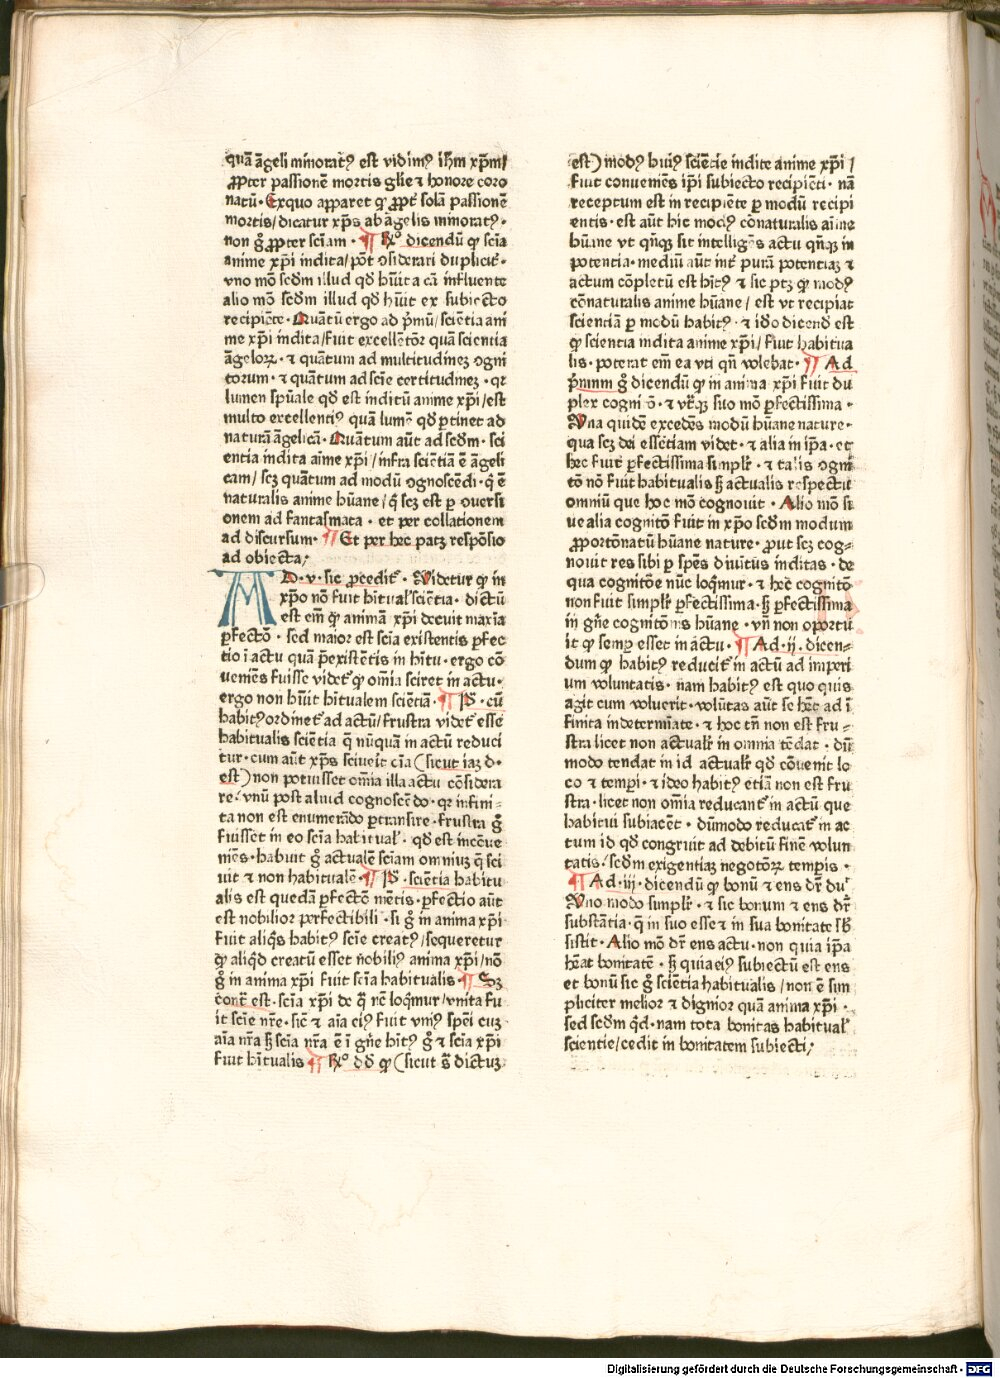 quā āgeli minoratꝰ est vidimꝰ ihm̄ xp̄m/
ꝓpter passionē mortis gl̄ie ⁊ honore coro
natū · Exquo apparet ꝙ ꝓpt̄ solā passionē
mortis / dicatur xp̄s ab āgelis minoratꝰ ·
non gͦ ꝓpter sciam · ¶ Rͦ dicendū ꝙ scia
anime xp̄i indita / pōt ꝯsiderari duplicit̄ ·
vno mō scd̄m illud qd̄ hūit a cā influente
alio mō scd̄m illud qd̄ hūit ex subiecto
recipiēte · Quātū ergo ad pͥmū / sciētia ani
me xp̄i indita / fuit excellētor quā scientia
āgeloꝝ · ⁊ quātum ad multitudineꝫ ꝯgni
torum · ⁊ quātum ad scīe certitudineꝫ · qꝛ
lumen sp̄uale qd̄ est inditū anime xp̄i / est
multo excellentiꝰ quā lumē qd̄ ꝑtinet ad
naturā āgelicā · Quātum aūt ad scd̄m · sci
entia indita aīme xp̄i / infra sciētiā ē āgeli
cam / scꝫ quātum ad modū ꝯgnoscēdi · q̄ ē
naturalis anime hūane / q̄ scꝫ est ꝑ ꝯuersi
onem ad fantasmata · et per collationem
ad discursum · ¶ Et per hec patꝫ respōsio
ad obiecta /
AD · v · sic ꝓcedit̄ · Videtur ꝙ in
xp̄no nō fuit hītual̄ sciētia · dictū
est em̄ ꝙ animā xp̄i decuit maxīa
ꝑfectō · sed maior est scīa existentis ꝑfec
tio ī actu quā p̄existētis in hītu · ergo cō
veniēs fuisse videt̄ ꝙ om̄ia sciret in actu ·
ergo non hūit hītualem sciētiā · ¶ P̄ · cū
habitꝰ ordinet̄ ad actū / frustra videt̄ esse
habitualis sciētia q̄ nūquā in actū reduci
tur · cum aūt xp̄s sciueīt om̄ia (sicut iaꝫ d ·
est) non potuisset om̄ia illa actu cōsidera
re / vnū post aliud cognoscēdo · qꝛ infini ⸗
ta non est enumerādo ꝑtransire · frustra gͦ
fuisset in eo scīa habitual̄ · qd̄ est incōue
niēs · habuit gͦ actualē sciam omniuꝫ q̄ sci
uit ⁊ non habitualē · ¶ P̄ · sciētia habitu
alis est quedā ꝑfectō mētis · ꝑfectio aūt
est nobilior perfectibili · si gͦ in anima xp̄i
fuit aliqͥs habitꝰ scīe creatꝰ / sequeretur
ꝙ aliqͥd creatū esset nobiliꝰ anima xp̄i / nō
gͦ in anima xp̄i fuit scīa habitualis · ¶ Sꝫ
cont̄ est · scīa xp̄i de q̄ nc̄ loqͥmur / vnita fu
it scīe nr̄e · sic̄ ⁊ aīa eiꝰ fuit vniꝰ sp̄ei cuꝫ
aīa nr̄a ꝫ scīa nr̄a ē ī gn̄e hītꝰ gͦ ⁊ scīa xp̄i
fuit hītualis ¶ Rͦ dd̄ ꝙ (sicut s̄ dictuꝫ
est) modꝰ huiꝰ sciētie indite anime xp̄i /
fuit conueniēs ip̄i subiecto recipiēti · nā
receptum est in recipiēte ꝑ modū recipi
entis · est aūt hic modꝰ cōnaturalis aīne
hūane vt qn̄qꝫ sit intelligēs actu qn̄qꝫ in
potentia · mediū aūt int̄ purā potentiaꝫ ⁊
actum cōpletū est hītꝰ ⁊ sic ptꝫ ꝙ modꝰ
cōnaturalis anime hūane / est vt recipiat
scientiā ꝑ modū habitꝰ · ⁊ ideo dicend̄ est
ꝙ scientia indita anime xp̄i / fuit habitua
lis · poterat em̄ ea vti qn̄ volebat · ¶ Ad
pͥmum gͦ dicendū ꝙ in anima xp̄i fuit du
plex cognitō · ⁊ vt̄qꝫ suo mō ꝑfectissima ·
Vna quidē excedēs modū hūane nature ·
qua scꝫ dei essētiam videt · ⁊ alia in ip̄a · et
hec fuit ꝑfectissima simplr̄ · ⁊ talis ꝯgni
tō nō fuit habitualis ꝫ actualis respectu
omniū que hoc mō cognouit · Alio mō fu
ue alia cognitō fuit in xp̄o scd̄m modum
ꝓportōnatū hūane nature · ꝓut scꝫ cog⸗
nouit res sibi ꝑ sp̄es diuitus inditas · de
qua cognitōe nūc loqͥmur · ⁊ hec cognitō
non fuit simplr̄ ꝑfectissima · ꝫ ꝑfectissima
in gn̄e cognitōnis hūane · vn̄ non oportu
it ꝙ semꝑ esset in actu · ¶ Ad · ij · dicen⸗
dum ꝙ habitꝰ reducit̄ in actū ad imperi
um voluntatis · nam habitꝰ est quo quis
agit cum voluerit · volūtas aūt se hēt ad ī
finita indetermīate · ⁊ hoc tn̄ non est fru ⸗
stra licet non actualr̄ in omnia tēdat · dū
modo tendat in id actualr̄ qd̄ cōuenit lo
co ⁊ tempi · ⁊ ideo habitꝰ etiā non est fru
stra · licet non om̄ia reducant̄ in actū que
habitui subiacēt · dūmodo reducat̄ in ac
tum id qd̄ congruit ad debitū finē volun
tatis / scd̄m exigentiaꝫ negotōꝝ ⁊ temꝑis ·
¶ Ad · iij · dicendū ꝙ bonū ⁊ ens dr̄ dupl̄
Vno modo simplr̄ · ⁊ sic bonum ⁊ ens dr̄
substātia · q̄ in suo esse ⁊ in sua bonitate sb̄
sistit · Alio mō dr̄ ens actu · non quia ip̄a
hēat bonitatē · ꝫ quia eiꝰ subiectū est ens
et bonū sic gͦ sciētia habitualis / non ē sim
pliciter melior ⁊ dignior quā anima xp̄i ·
sed scd̄m qͥd · nam tota bonitas habitual̄
scientie / cedit in bonitatem subiecti /
Digitalisierung gefördert durch die Deutsche Forschungsgemeinschaft · DFG